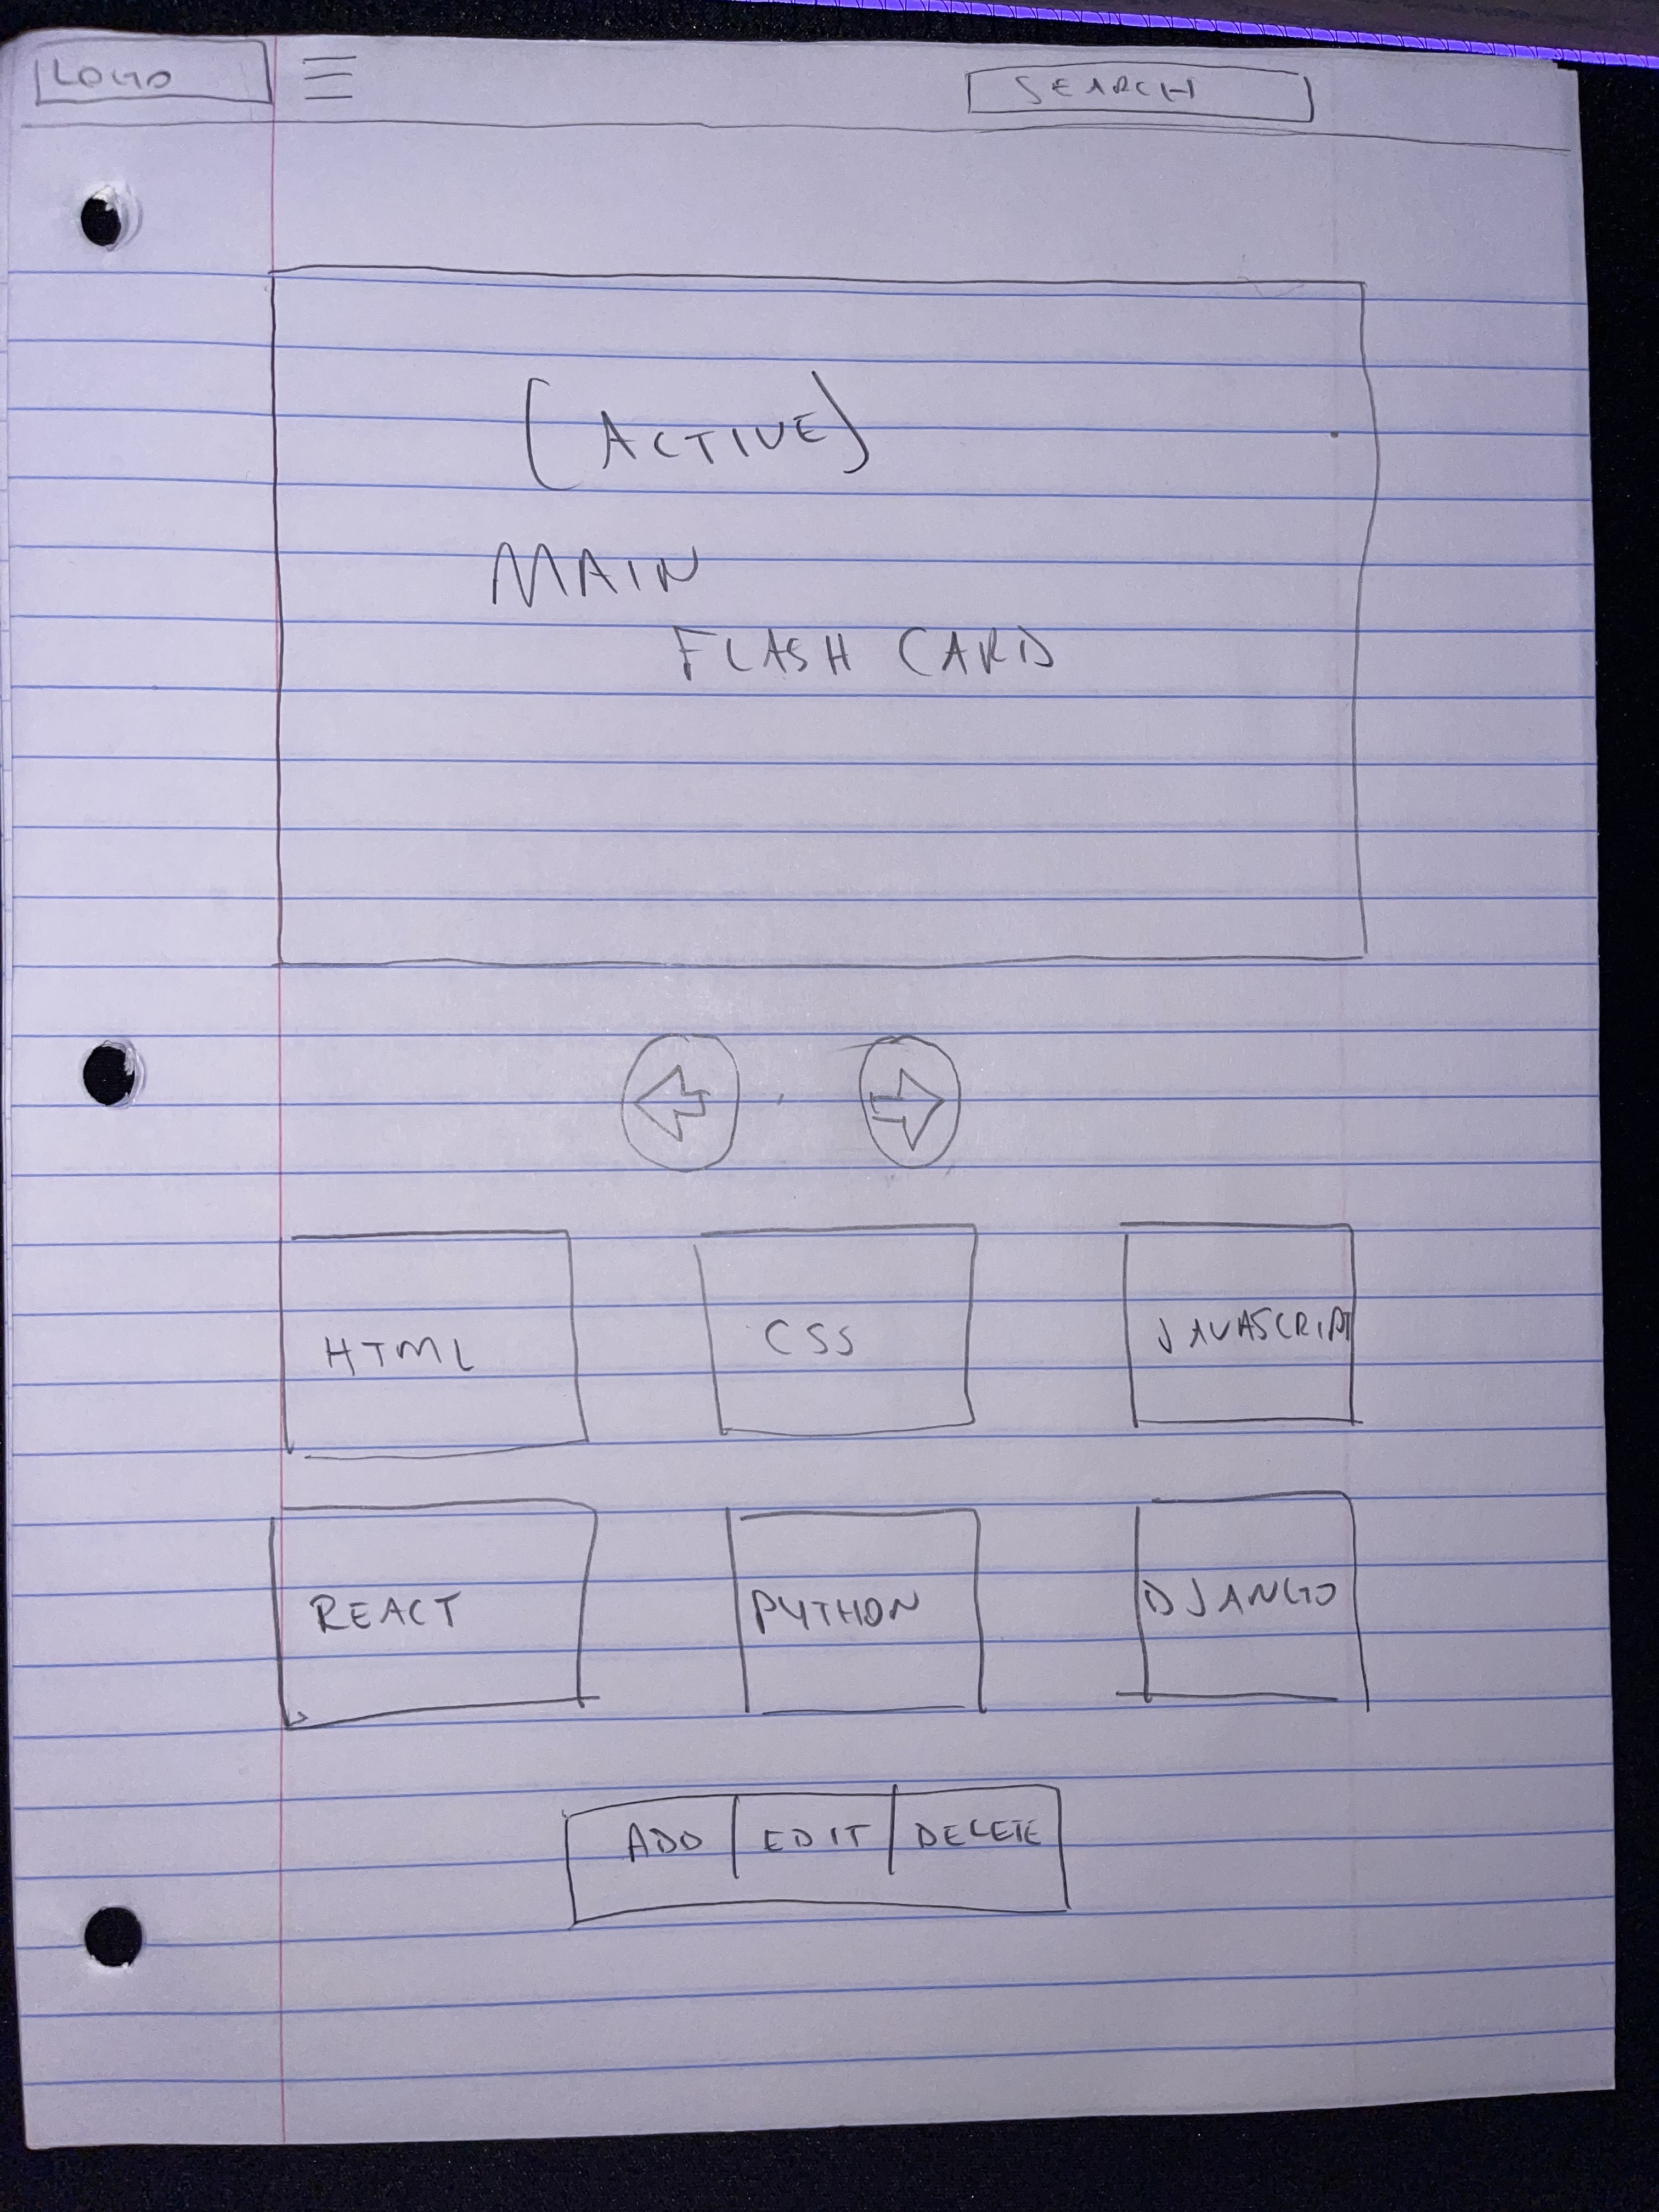 LOGO
SEARCH
(ACTIVE)
MAIN
FLASH CARD
HTML
CSS
JAVASCRIPT
REACT
PYTHON
DJANGO
ADD | EDIT | DELETE